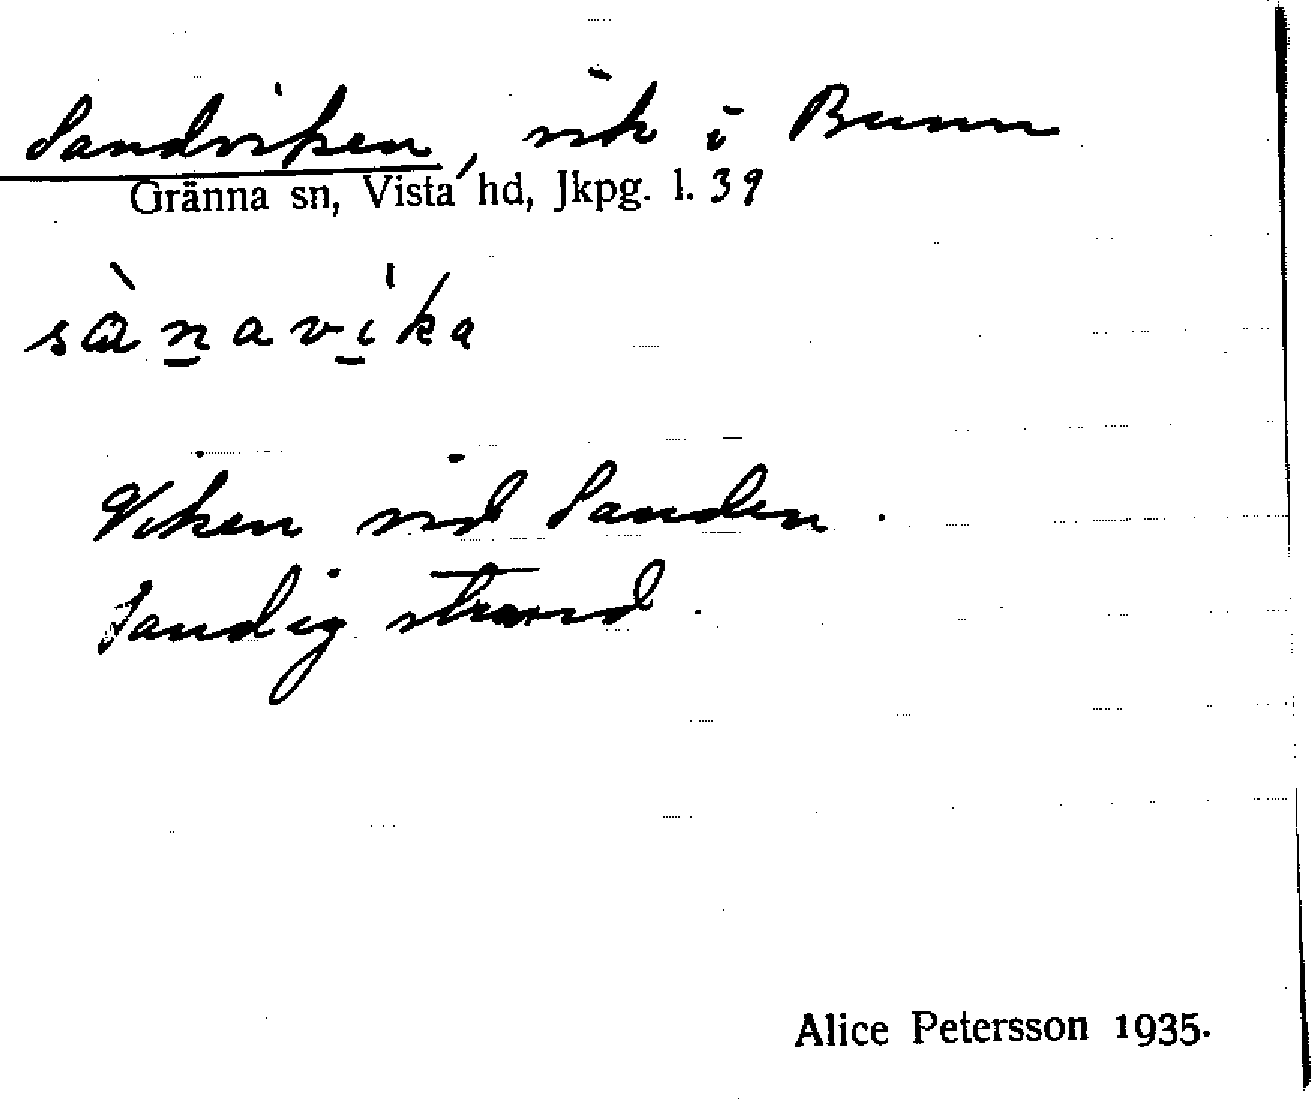 Sandviken, vik i Bunn
Gränna sn, Vista hd, Jkpg. l. 39
sàn̲aví̲ka
Viken vid Sanden.
Sandig strand.
Alice Petersson 1935.